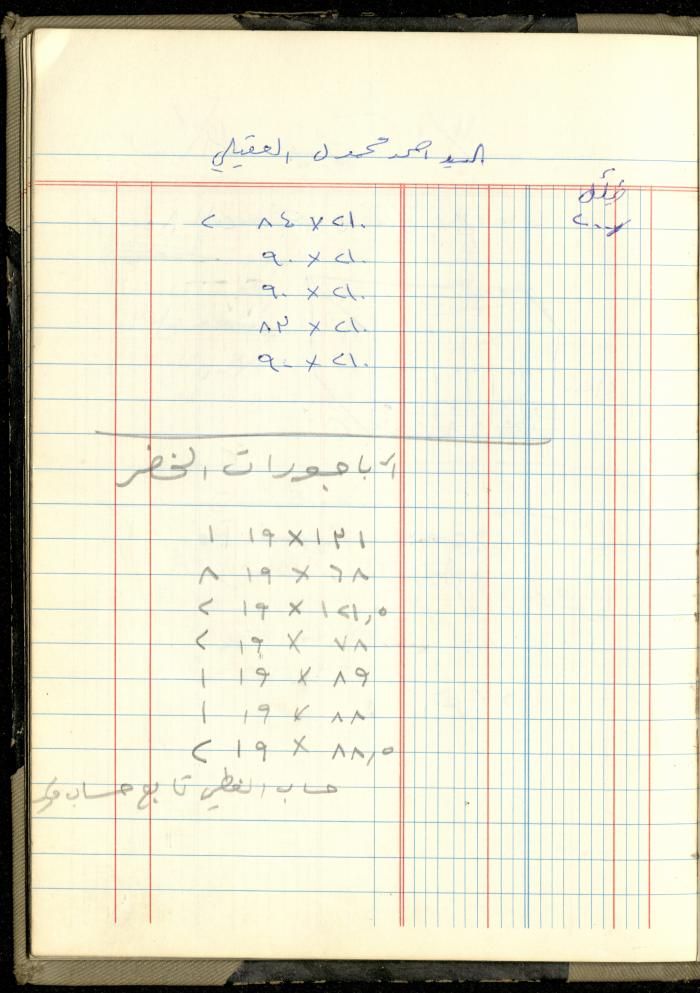 السيد احمد محمود العقيلي
٢٠٠
٢١٠ × ٨٤ ٢
٢١٠ × ٩٠
٢١٠ × ٩٠
٢١٠ × ٨٣
٢١٠ × ٩٠
أباجورات الخضر
١٣١ × ١٩ ١
٦٨ × ١٩ ٨
١٢١,٥ × ١٩ ٢
٧٨ × ١٩ ٢
٨٩ × ١٩ ١
٨٨ × ١٩ ١
٨٨,٥ × ١٩ ٢
حساب تابع حساب